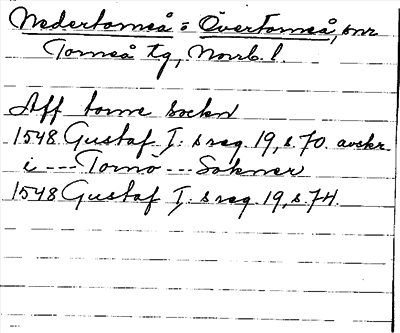 Nedertorneå = Övertorneå, snr
Torneå tg, Norrb. l.
Aff torne sockn
1548 Gustaf I:s reg. 19, s. 70. avskr.
i --- Tornö --- Sokner
1548 Gustaf I:s reg. 19, s. 74.